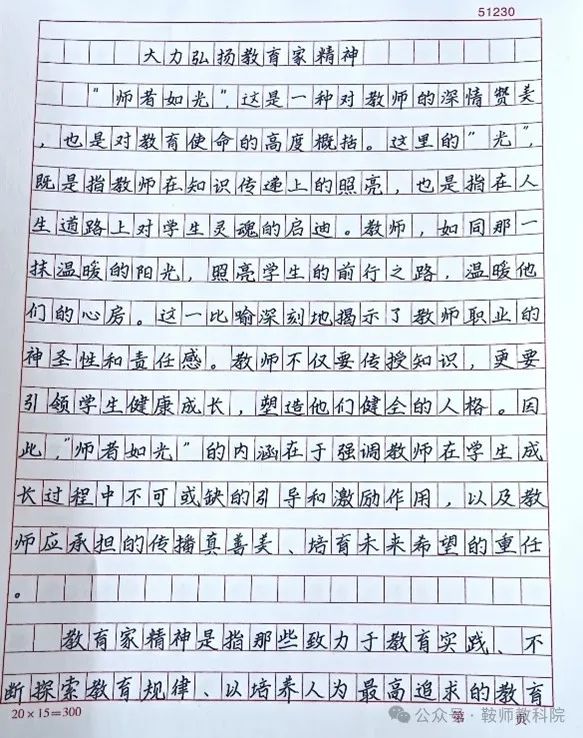 51230
大力弘扬教育家精神
“师者如光”,这是一种对教师的深情赞美
,也是对教育使命的高度概括。这里的“光”,
既是指教师在知识传递上的照亮,也是指在人
生道路上对学生灵魂的启迪。教师,如同那一
抹温暖的阳光,照亮学生的前行之路,温暖他
们的心房。这一比喻深刻地揭示了教师职业的
神圣性和责任感。教师不仅要传授知识,更要
引领学生健康成长,塑造他们健全的人格。因
此,“师者如光”的内涵在于强调教师在学生成
长过程中不可或缺的引导和激励作用,以及教
师应承担的传播真善美、培育未来希望的重任
。
教育家精神是指那些致力于教育实践、不
断探索教育规律、以培养人为最高追求的教育
20×15=300 第 页
公众号·鞍师教科院